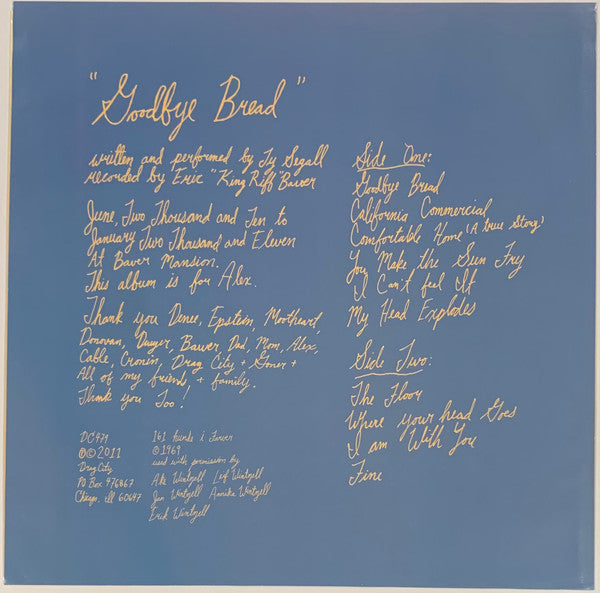 "Goodbye Bread"
written and performed by Ty Segall
recorded by Eric "King Riff" Bauer
June, Two Thousand and Ten to
January Two Thousand and Eleven
At Bauer Mansion.
This album is for Alex.
Thank you Denee, Epstein, Mootheart,
Donovan, Dwyer, Bauer, Dad, Mom, Alex,
Cable, Cronin, Drag City + Goner +
All of my friends + family.
Thank you Too!
DC479
℗© 2011
Drag City
PO Box 476867
Chicago, ill 60647
©1969
used with permission by
Åke Wintzell Leif Wintzell
Jan Wintzell Annika Wintzell
Erik Wintzell
Side One:
Goodbye Bread
California Commercial
Comfortable Home (A true Story)
You Make the Sun Fry
I Can't feel It
My Head Explodes
Side Two:
The Floor
Where your head Goes
I am With You
Fine